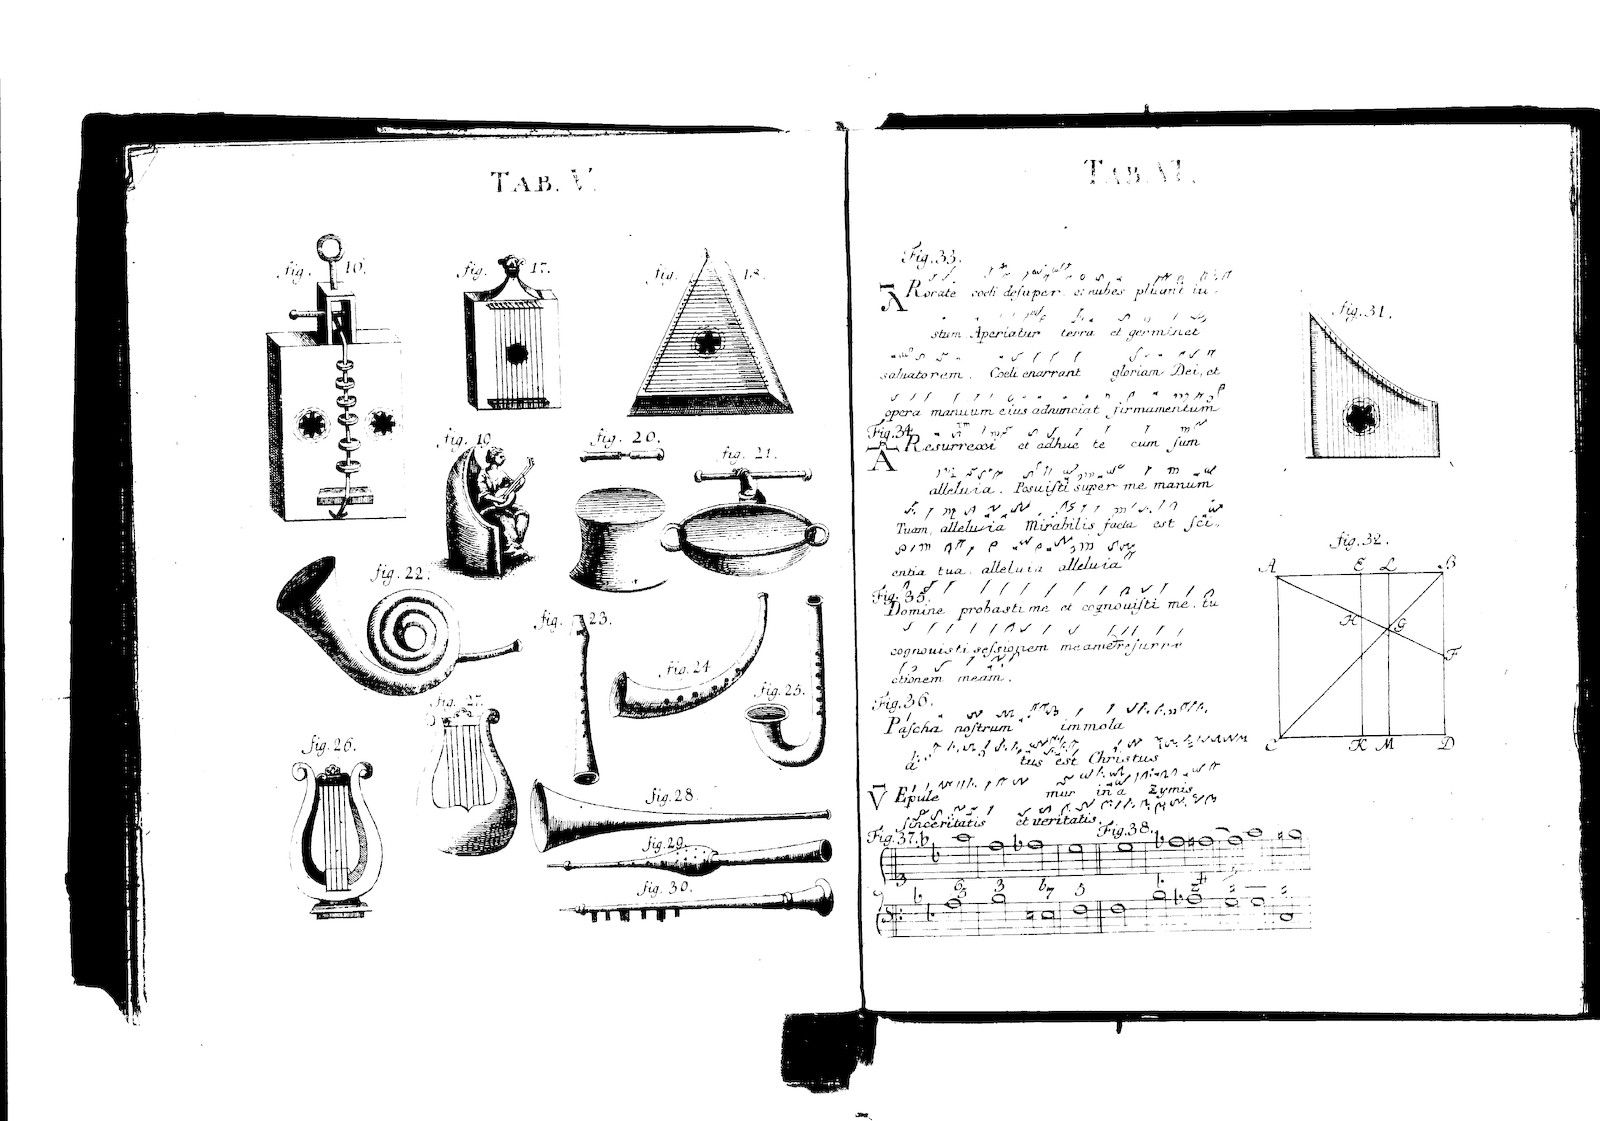 TAB. V.
fig. 16.
fig. 17.
fig. 18.
fig. 19.
fig. 20.
fig. 21.
fig. 22.
fig. 23.
fig. 24.
fig. 25.
fig. 26.
fig. 27.
fig. 28.
fig. 29.
fig. 30.
TAB. VI.
Fig. 33.
A Rorate coeli desuper et nubes pluant iu-
stum Aperiatur terra et germinet
saluatorem. Coeli enarrant gloriam Dei, et
opera manuum eius adnunciat firmamentum
Fig. 34.
A Resurrexi et adhuc te cum sum
alleluia. Posuisti super me manum
Tuam, alleluia Mirabilis facta est sci-
entia tua. alleluia alleluia
Fig. 35.
Domine probasti me et cognouisti me. tu
cognouisti sessionem meam et resurre
ctionem meam.
Fig. 36.
Pascha nostrum immola
tus est Christus
V Epule mur in a zymis
sinceritatis et veritatis.
Fig. 37. Fig. 38.
fig. 31.
fig. 32.
A E L B
H G
F
C K M D